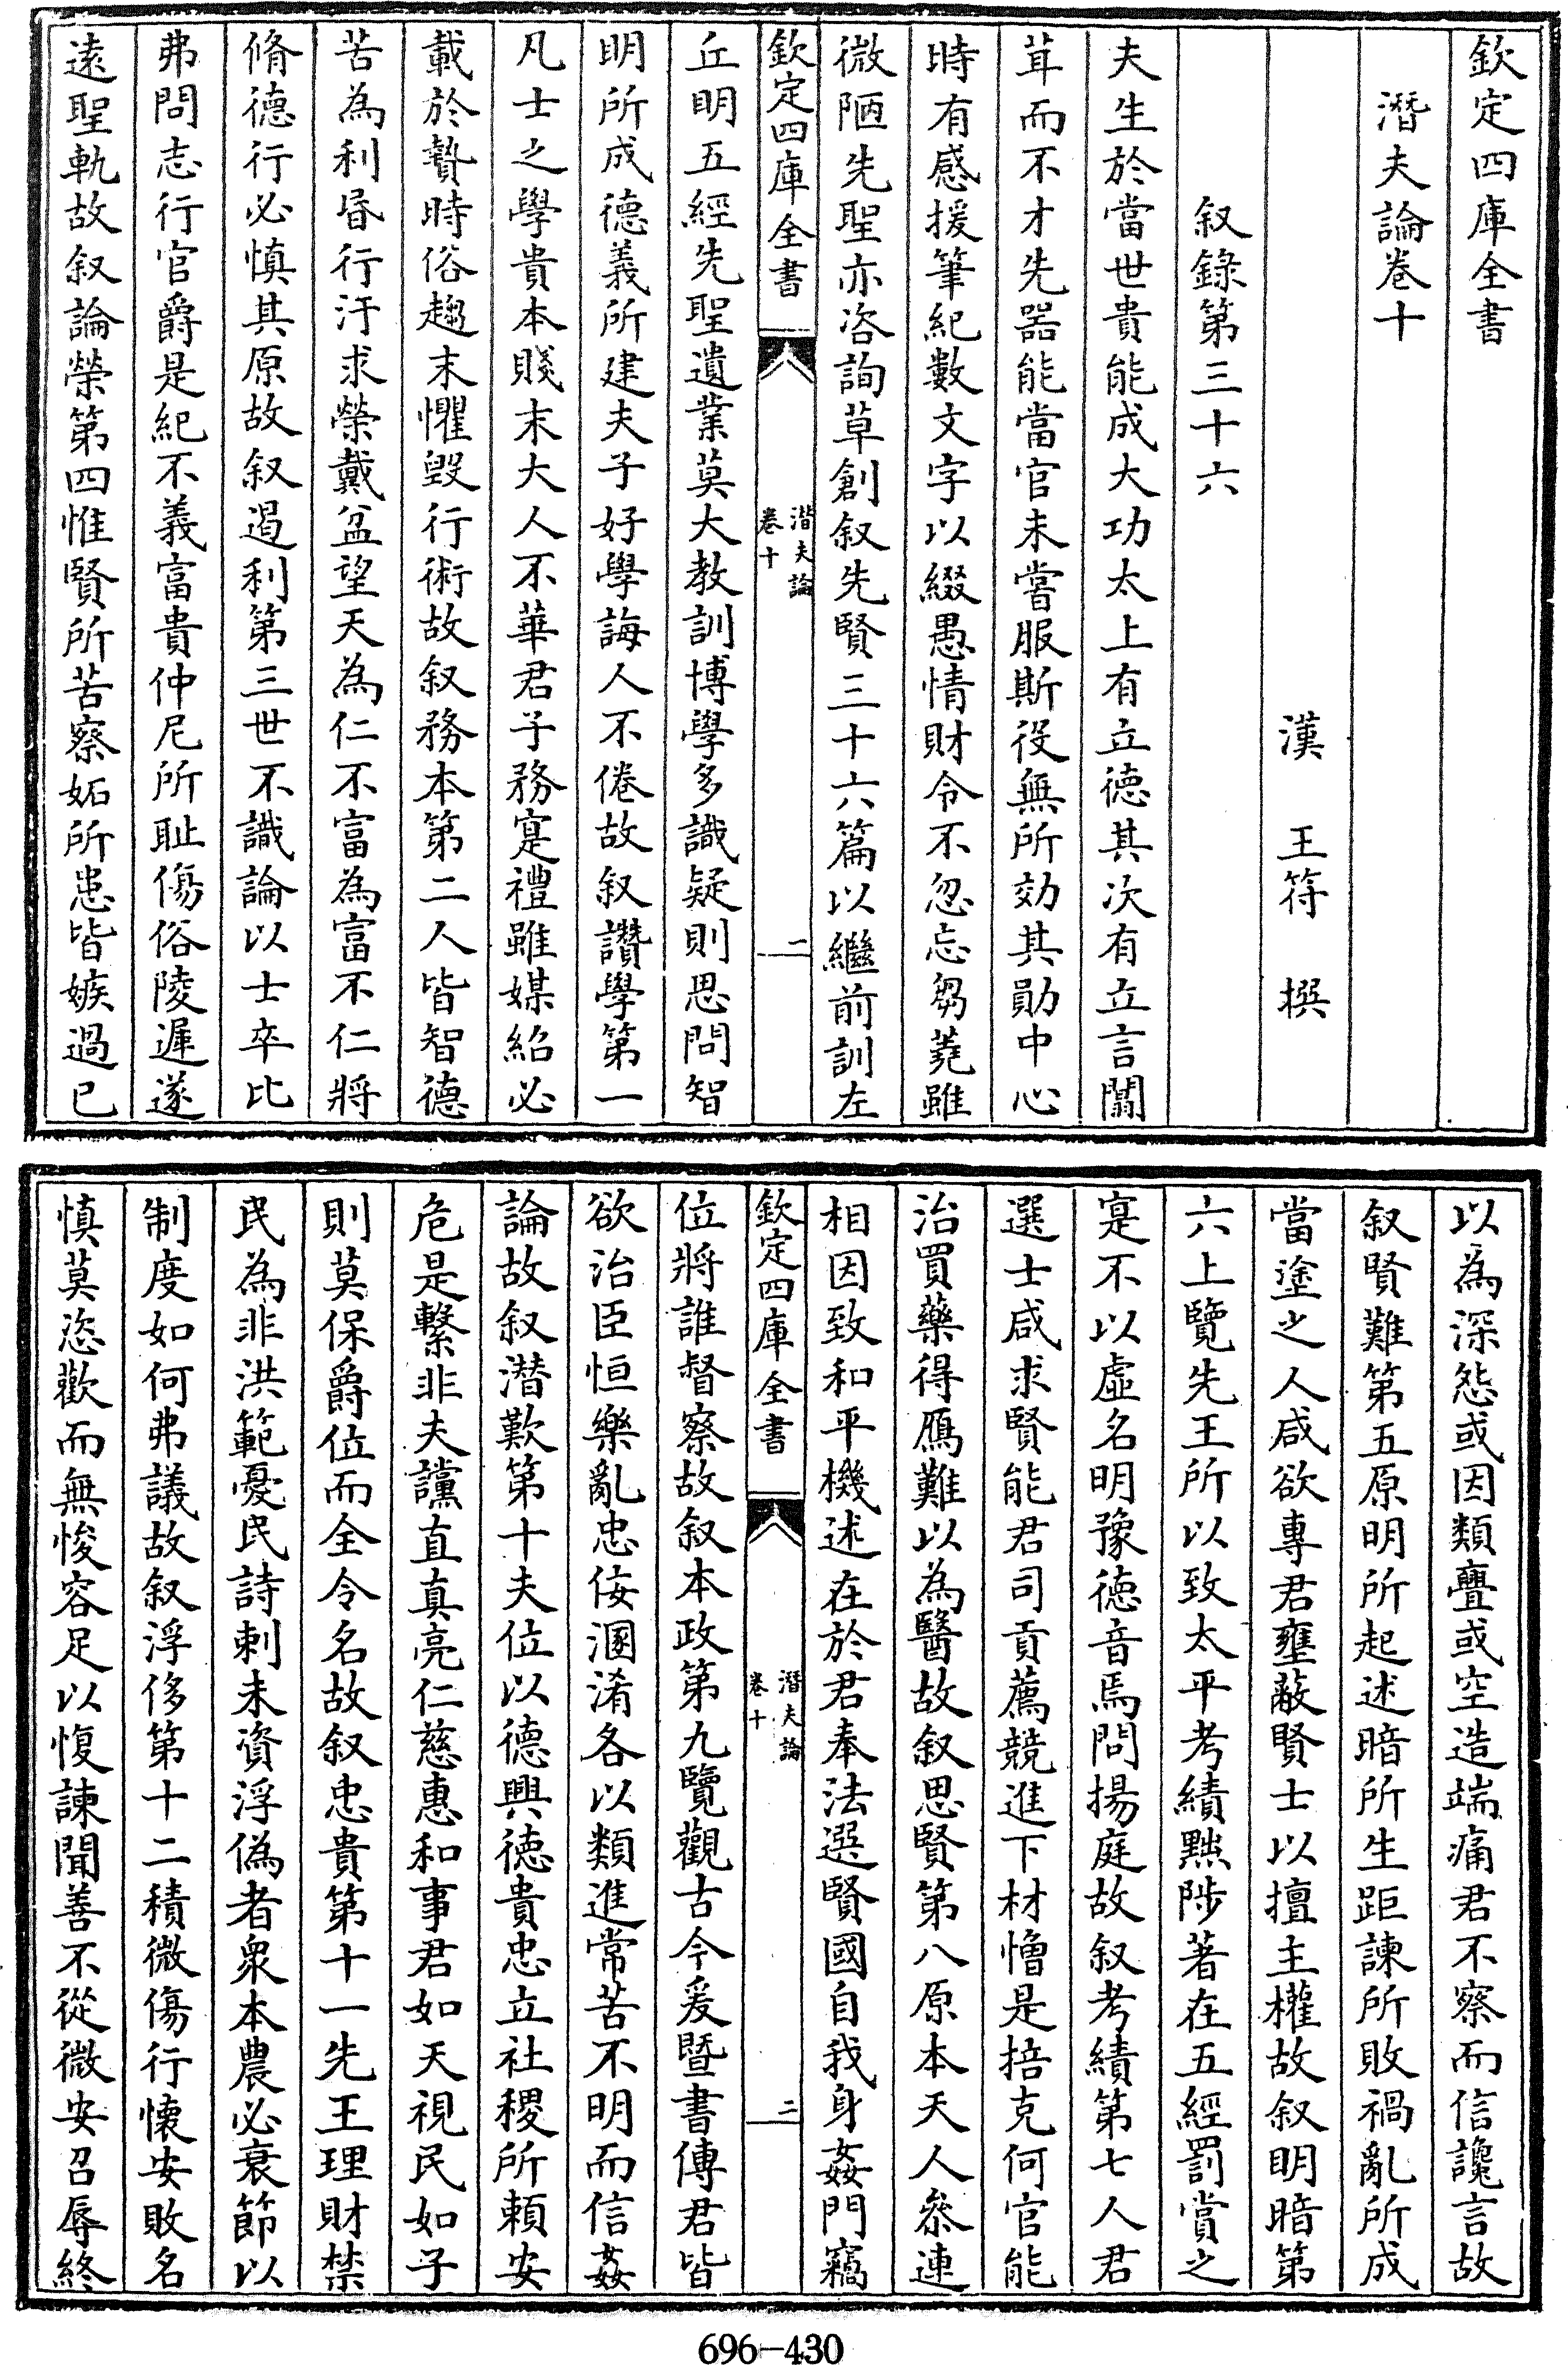 欽定四庫全書
潛夫論卷十
漢 王符 撰
叙錄第三十六
夫生於當世貴能成大功太上有立德其次有立言闒
茸而不才先噐能當官未嘗服斯役無所効其勛中心
時有感援筆紀數文字以綴愚情財令不忽忘芻蕘雖
微陋先聖亦咨詢草創叙先賢三十六篇以繼前訓左
欽定四庫全書
潛夫論
卷十
一
丘明五經先聖遺業莫大教訓博學多識疑則思問智
明所成德義所建夫子好學誨人不倦故叙讚學第一
凡士之學貴本賤末大人不華君子務寔禮雖媒紹必
載於贄時俗趨末懼毀行術故叙務本第二人皆智德
苦為利昏行汙求榮戴盆望天為仁不富為富不仁將
脩德行必慎其原故叙遏利第三世不識論以士卒比
弗問志行官爵是紀不義富貴仲尼所耻傷俗陵遲遂
遠聖軌故叙論榮第四惟賢所苦察妬所患皆嫉過已
以為深怨或因類釁或空造端痛君不察而信讒言故
叙賢難第五原明所起述暗所生距諫所敗禍亂所成
當塗之人咸欲專君壅蔽賢士以擅主權故叙明暗第
六上覽先王所以致太平考績黜陟著在五經罰賞之
寔不以虛名明豫德音焉問揚庭故叙考績第七人君
選士咸求賢能君司貢薦競進下材憎是掊克何官能
治買藥得鴈難以為醫故叙思賢第八原本天人叅連
相因致和平機述在於君奉法選賢國自我身姦門竊
欽定四庫全書
潛夫論
卷十
二
位將誰督察故叙本政第九覽觀古今爰暨書傳君皆
欲治臣恒樂亂忠佞溷淆各以類進常苦不明而信姦
論故叙潛歎第十夫位以德興德貴忠立社稷所賴安
危是繫非夫讜直真亮仁慈惠和事君如天視民如子
則莫保爵位而全令名故叙忠貴第十一先王理財禁
民為非洪範憂民詩刺末資浮偽者衆本農必衰節以
制度如何弗議故叙浮侈第十二積微傷行懷安敗名
慎莫恣歡而無悛容足以愎諫聞善不從微安召辱終
696-430